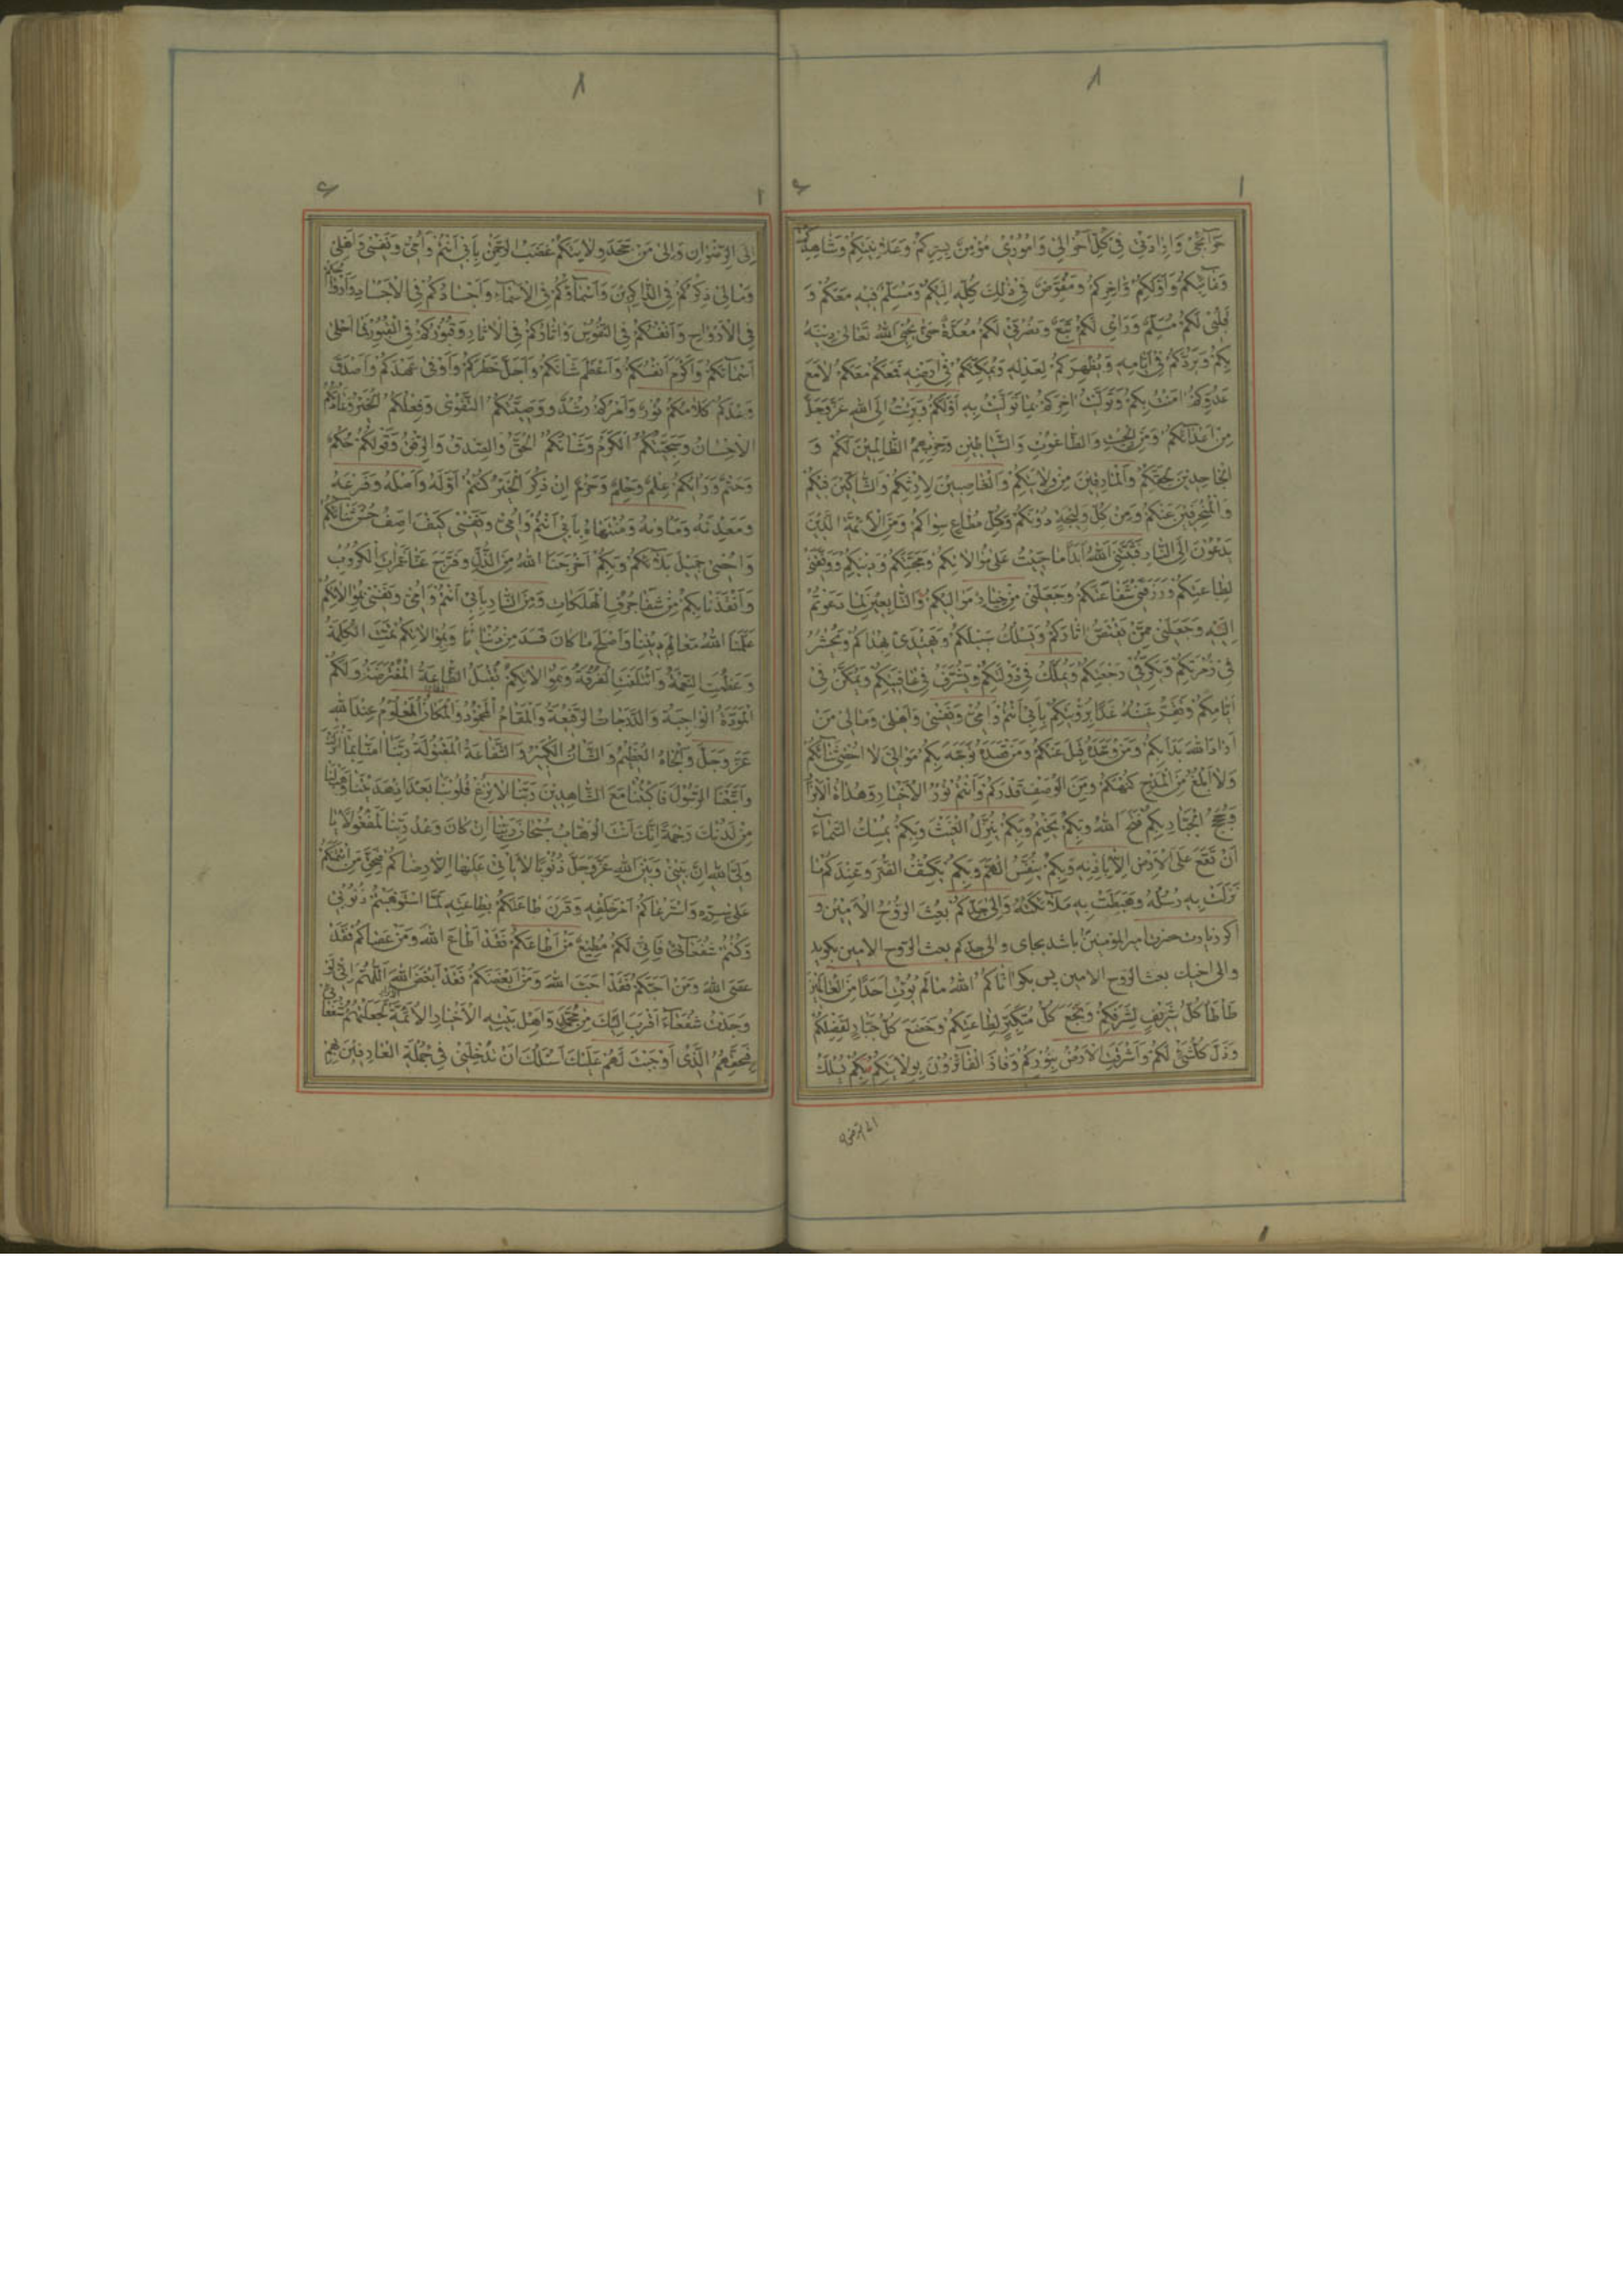 ۸
۱ ۶
حَوَآئِجی وَاِرٰادَتی فی کُلِّ اَحْوٰالی وَاُمُوری مُؤْمِنٌ بِسِرِّکُمْ وَعَلاٰنِیَتِکُمْ وَشٰاهِدِکُمْ
وَغٰائِبِکُمْ وَاَوَّلِکُمْ وَاٰخِرِکُمْ وَمُفَوِّضٌ فی ذٰلِکَ کُلِّهِ اِلَیْکُمْ وَمُسَلِّمٌ فیهِ مَعَکُمْ وَ
قَلْبی لَکُمْ مُسَلِّمٌ وَرَاْیی لَکُمْ تَبَعٌ وَنُصْرَتی لَکُمْ مُعَدَّةٌ حَتّٰی یُحْیِیَ اللّٰهُ تَعٰالٰی دینَهُ
بِکُمْ وَیَرُدَّکُمْ فی اَیّٰامِهِ وَیُظْهِرَکُمْ لِعَدْلِهِ وَیُمَکِّنَکُمْ فی اَرْضِهِ فَمَعَکُمْ مَعَکُمْ لاٰ مَعَ
عَدُوِّکُمْ اٰمَنْتُ بِکُمْ وَتَوَلَّیْتُ اٰخِرَکُمْ بِمٰا تَوَلَّیْتُ بِهِ اَوَّلَکُمْ وَبَرِئْتُ اِلَی اللّٰهِ عَزَّوَجَلَّ
مِنْ اَعْدٰآئِکُمْ وَمِنَ الْجِبْتِ وَالطّٰاغُوتِ وَالشَّیٰاطینِ وَحِزْبِهِمُ الظّٰالِمینَ لَکُمْ وَ
الْجٰاحِدینَ لِحَقِّکُمْ وَالْمٰارِقینَ مِنْ وِلاٰیَتِکُمْ وَالْغٰاصِبینَ لِاِرْثِکُمْ وَالشّٰاکّینَ فیکُمْ
وَالْمُنْحَرِفینَ عَنْکُمْ وَمِنْ کُلِّ وَلیجَةٍ دُونَکُمْ وَکُلِّ مُطٰاعٍ سِوٰاکُمْ وَمِنَ الْاَئِمَّةِ الَّذینَ
یَدْعُونَ اِلَی النّٰارِ فَثَبَّتَنِیَ اللّٰهُ اَبَدًا مٰا حَییتُ عَلٰی مُوٰالاٰتِکُمْ وَمَحَبَّتِکُمْ وَدینِکُمْ وَوَفَّقَنی
لِطٰاعَتِکُمْ وَرَزَقَنی شَفٰاعَتَکُمْ وَجَعَلَنی مِنْ خِیٰارِ مَوٰالیکُمْ وَالتّٰابِعینَ لِمٰا دَعَوْتُمْ
اِلَیْهِ وَجَعَلَنی مِمَّنْ یَقْتَصُّ اٰثٰارَکُمْ وَیَسْلُکُ سَبیلَکُمْ وَیَهْتَدی بِهُدٰاکُمْ وَیُحْشَرُ
فی زُمْرَتِکُمْ وَیَکِرُّ فی رَجْعَتِکُمْ وَیُمَلَّکُ فی دَوْلَتِکُمْ وَیُشَرَّفُ فی عٰافِیَتِکُمْ وَیُمَکَّنُ فی
اَیّٰامِکُمْ وَتَقَرُّ عَیْنُهُ غَدًا بِرُؤْیَتِکُمْ بِاَبی اَنْتُمْ وَاُمّی وَنَفْسی وَاَهْلی وَمٰالی مَنْ
اَرٰادَ اللّٰهَ بَدَاَ بِکُمْ وَمَنْ وَحَّدَهُ قَبِلَ عَنْکُمْ وَمَنْ قَصَدَهُ تَوَجَّهَ بِکُمْ مَوٰالِیَّ لاٰ اُحْصی ثَنٰآئَکُمْ
وَلاٰ اَبْلُغُ مِنَ الْمَدْحِ کُنْهَکُمْ وَمِنَ الْوَصْفِ قَدْرَکُمْ وَاَنْتُمْ نُورُ الْاَخْیٰارِ وَهُدٰاةُ الْاَبْرٰارِ
وَحُجَجُ الْجَبّٰارِ بِکُمْ فَتَحَ اللّٰهُ وَبِکُمْ یَخْتِمُ وَبِکُمْ یُنَزِّلُ الْغَیْثَ وَبِکُمْ یُمْسِکُ السَّمٰآءَ
اَنْ تَقَعَ عَلَی الْاَرْضِ اِلاّٰ بِاِذْنِهِ وَبِکُمْ یُنَفِّسُ الْهَمَّ وَبِکُمْ یَکْشِفُ الضُّرَّ وَعِنْدَکُمْ مٰا
نَزَلَتْ بِهِ رُسُلُهُ وَهَبَطَتْ بِهِ مَلاٰئِکَتُهُ وَاِلٰی جَدِّکُمْ بُعِثَ الرُّوحُ الْاَمینُ وَ
اکر زیارت حضرت امیرالمؤمنین باشد بجای والی جدکم بعث الروح الامین بکوید
والی اخیک بعث الروح الامین پس بکو اٰتٰاکُمُ اللّٰهُ مٰا لَمْ یُؤْتِ اَحَدًا مِنَ الْعٰالَمینَ
طَاْطَاَ کُلُّ شَریفٍ لِشَرَفِکُمْ وَبَخَعَ کُلُّ مُتَکَبِّرٍ لِطٰاعَتِکُمْ وَخَضَعَ کُلُّ جَبّٰارٍ لِفَضْلِکُمْ
وَذَلَّ کُلُّ شَیْءٍ لَکُمْ وَاَشْرَقَتِ الْاَرْضُ بِنُورِکُمْ وَفٰازَ الْفٰآئِزُونَ بِوِلاٰیَتِکُمْ بِکُمْ یُسْلَکُ
الی الرضوان
۸
۱ ۶
اِلَی الرِّضْوٰانِ وَعَلٰی مَنْ جَحَدَ وِلاٰیَتَکُمْ غَضَبُ الرَّحْمٰنِ بِاَبی اَنْتُمْ وَاُمّی وَنَفْسی وَاَهْلی
وَمٰالی ذِکْرُکُمْ فِی الذّٰاکِرینَ وَاَسْمٰآؤُکُمْ فِی الْاَسْمٰآءِ وَاَجْسٰادُکُمْ فِی الْاَجْسٰادِ وَاَرْوٰاحُکُمْ
فِی الْاَرْوٰاحِ وَاَنْفُسُکُمْ فِی النُّفُوسِ وَاٰثٰارُکُمْ فِی الْاٰثٰارِ وَقُبُورُکُمْ فِی الْقُبُورِ فَمٰا اَحْلٰی
اَسْمٰآئَکُمْ وَاَکْرَمَ اَنْفُسَکُمْ وَاَعْظَمَ شَاْنَکُمْ وَاَجَلَّ خَطَرَکُمْ وَاَوْفٰی عَهْدَکُمْ وَاَصْدَقَ
وَعْدَکُمْ کَلاٰمُکُمْ نُورٌ وَاَمْرُکُمْ رُشْدٌ وَوَصِیَّتُکُمُ التَّقْوٰی وَفِعْلُکُمُ الْخَیْرُ وَعٰادَتُکُمُ
الْاِحْسٰانُ وَسَجِیَّتُکُمُ الْکَرَمُ وَشَاْنُکُمُ الْحَقُّ وَالصِّدْقُ وَالرِّفْقُ وَقَوْلُکُمْ حُکْمٌ
وَحَتْمٌ وَرَاْیُکُمْ عِلْمٌ وَحِلْمٌ وَحَزْمٌ اِنْ ذُکِرَ الْخَیْرُ کُنْتُمْ اَوَّلَهُ وَاَصْلَهُ وَفَرْعَهُ
وَمَعْدِنَهُ وَمَاْوٰیهُ وَمُنْتَهٰاهُ بِاَبی اَنْتُمْ وَاُمّی وَنَفْسی کَیْفَ اَصِفُ حُسْنَ ثَنٰآئِکُمْ
وَاُحْصی جَمیلَ بَلاٰئِکُمْ وَبِکُمْ اَخْرَجَنَا اللّٰهُ مِنَ الذُّلِّ وَفَرَّجَ عَنّٰا غَمَرٰاتِ الْکُرُوبِ
وَاَنْقَذَنٰا بِکُمْ مِنْ شَفٰا جُرُفِ الْهَلَکٰاتِ وَمِنَ النّٰارِ بِاَبی اَنْتُمْ وَاُمّی وَنَفْسی بِمُوٰالاٰتِکُمْ
عَلَّمَنَا اللّٰهُ مَعٰالِمَ دینِنٰا وَاَصْلَحَ مٰا کٰانَ فَسَدَ مِنْ دُنْیٰانٰا وَبِمُوٰالاٰتِکُمْ تَمَّتِ الْکَلِمَةُ
وَعَظُمَتِ النِّعْمَةُ وَائْتَلَفَتِ الْفُرْقَةُ وَبِمُوٰالاٰتِکُمْ تُقْبَلُ الطّٰاعَةُ الْمُفْتَرَضَةُ وَلَکُمُ
الْمَوَدَّةُ الْوٰاجِبَةُ وَالدَّرَجٰاتُ الرَّفیعَةُ وَالْمَقٰامُ الْمَحْمُودُ وَالْمَکٰانُ الْمَعْلُومُ عِنْدَ اللّٰهِ
عَزَّ وَجَلَّ وَالْجٰاهُ الْعَظیمُ وَالشَّاْنُ الْکَبیرُ وَالشَّفٰاعَةُ الْمَقْبُولَةُ رَبَّنٰا اٰمَنّٰا بِمٰا اَنْزَلْتَ
وَاتَّبَعْنَا الرَّسُولَ فَاکْتُبْنٰا مَعَ الشّٰاهِدینَ رَبَّنٰا لاٰ تُزِغْ قُلُوبَنٰا بَعْدَ اِذْ هَدَیْتَنٰا وَهَبْ لَنٰا
مِنْ لَدُنْکَ رَحْمَةً اِنَّکَ اَنْتَ الْوَهّٰابُ سُبْحٰانَ رَبِّنٰا اِنْ کٰانَ وَعْدُ رَبِّنٰا لَمَفْعُولاً یٰا
وَلِیَّ اللّٰهِ اِنَّ بَیْنی وَبَیْنَ اللّٰهِ عَزَّوَجَلَّ ذُنُوبًا لاٰ یَاْتی عَلَیْهٰا اِلاّٰ رِضٰاکُمْ فَبِحَقِّ مَنِ ائْتَمَنَکُمْ
عَلٰی سِرِّهِ وَاسْتَرْعٰاکُمْ اَمْرَ خَلْقِهِ وَقَرَنَ طٰاعَتَکُمْ بِطٰاعَتِهِ لَمَّا اسْتَوْهَبْتُمْ ذُنُوبی
وَکُنْتُمْ شُفَعٰآئی فَاِنّی لَکُمْ مُطیعٌ مَنْ اَطٰاعَکُمْ فَقَدْ اَطٰاعَ اللّٰهَ وَمَنْ عَصٰاکُمْ فَقَدْ
عَصَی اللّٰهَ وَمَنْ اَحَبَّکُمْ فَقَدْ اَحَبَّ اللّٰهَ وَمَنْ اَبْغَضَکُمْ فَقَدْ اَبْغَضَ اللّٰهَ اَللّٰهُمَّ اِنّی لَوْ
وَجَدْتُ شُفَعٰآءَ اَقْرَبَ اِلَیْکَ مِنْ مُحَمَّدٍ وَاَهْلِ بَیْتِهِ الْاَخْیٰارِ الْاَئِمَّةِ الْاَبْرٰارِ لَجَعَلْتُهُمْ شُفَعٰآئی
فَبِحَقِّهِمُ الَّذی اَوْجَبْتَ لَهُمْ عَلَیْکَ اَسْئَلُکَ اَنْ تُدْخِلَنی فی جُمْلَةِ الْعٰارِفینَ بِهِمْ